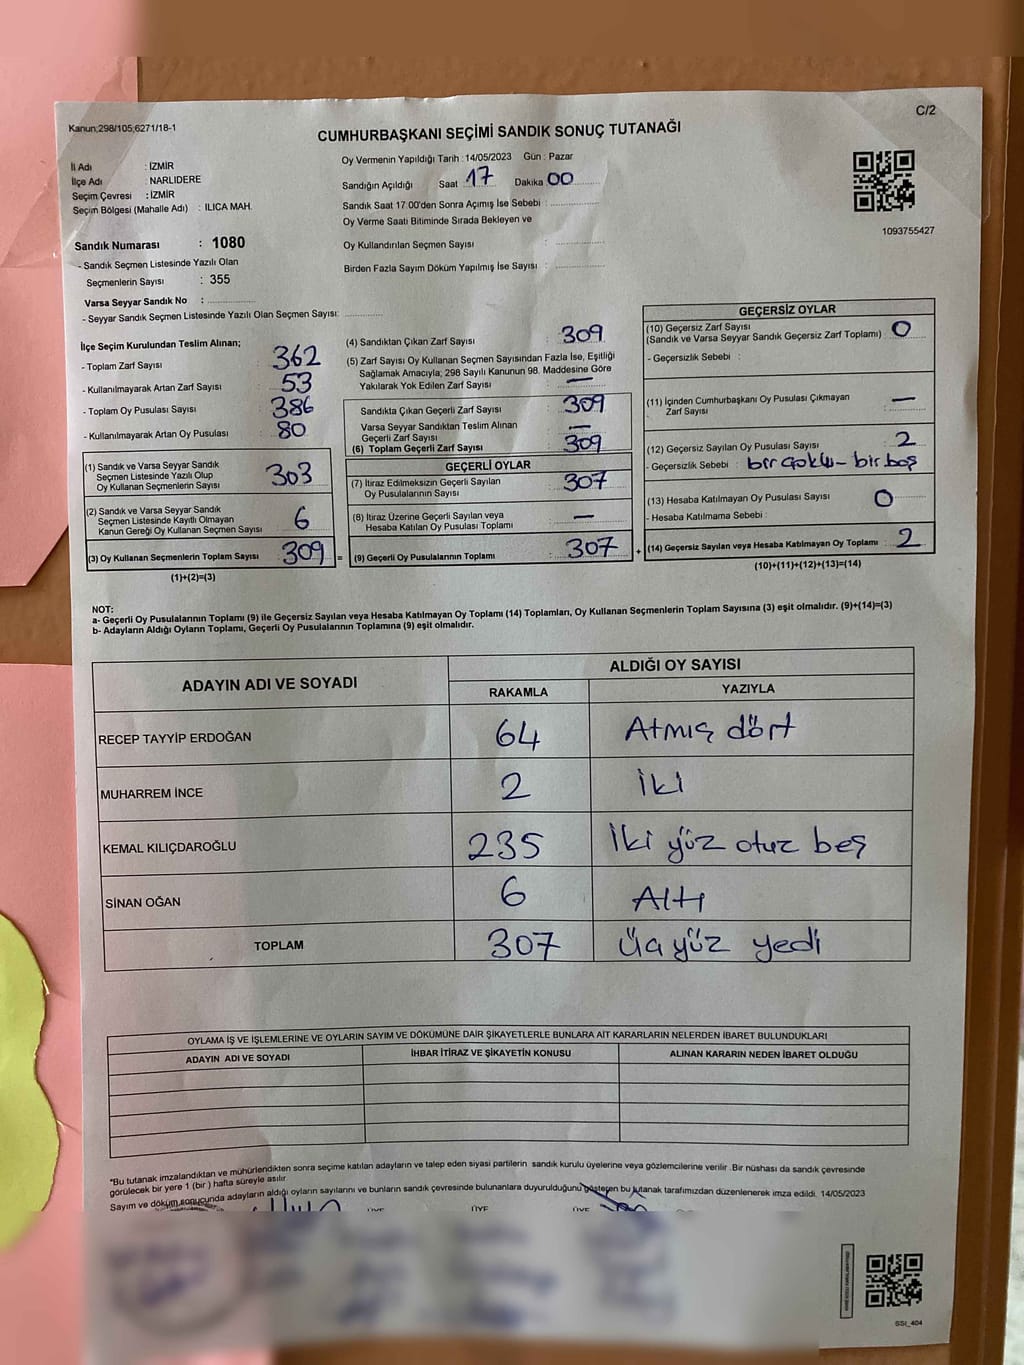 Kanun;298/105;6271/18-1
C/2
CUMHURBAŞKANI SEÇİMİ SANDIK SONUÇ TUTANAĞI
İl Adı : İZMİR
İlçe Adı : NARLIDERE
Seçim Çevresi : İZMİR
Seçim Bölgesi (Mahalle Adı) : ILICA MAH.
Oy Vermenin Yapıldığı Tarih : 14/05/2023 Gün : Pazar
Sandığın Açıldığı Saat 17 Dakika 00
Sandık Saat 17.00'den Sonra Açımış İse Sebebi :
Oy Verme Saati Bitiminde Sırada Bekleyen ve
Oy Kullandırılan Seçmen Sayısı :
Birden Fazla Sayım Döküm Yapılmış İse Sayısı :
1093755427
Sandık Numarası : 1080
- Sandık Seçmen Listesinde Yazılı Olan
Seçmenlerin Sayısı : 355
Varsa Seyyar Sandık No :
- Seyyar Sandık Seçmen Listesinde Yazılı Olan Seçmen Sayısı:
İlçe Seçim Kurulundan Teslim Alınan;
- Toplam Zarf Sayısı : 362
- Kullanılmayarak Artan Zarf Sayısı : 53
- Toplam Oy Pusulası Sayısı : 386
- Kullanılmayarak Artan Oy Pusulası : 80
(1) Sandık ve Varsa Seyyar Sandık
Seçmen Listesinde Yazılı Olup
Oy Kullanan Seçmenlerin Sayısı : 303
(2) Sandık ve Varsa Seyyar Sandık
Seçmen Listesinde Kayıtlı Olmayan
Kanun Gereği Oy Kullanan Seçmen Sayısı : 6
(3) Oy Kullanan Seçmenlerin Toplam Sayısı : 309 =
(1)+(2)=(3)
(4) Sandıktan Çıkan Zarf Sayısı : 309
(5) Zarf Sayısı Oy Kullanan Seçmen Sayısından Fazla İse, Eşitliği
Sağlamak Amacıyla; 298 Sayılı Kanunun 98. Maddesine Göre
Yakılarak Yok Edilen Zarf Sayısı : —
Sandıkta Çıkan Geçerli Zarf Sayısı : 309
Varsa Seyyar Sandıktan Teslim Alınan
Geçerli Zarf Sayısı : —
(6) Toplam Geçerli Zarf Sayısı : 309
GEÇERLİ OYLAR
(7) İtiraz Edilmeksizin Geçerli Sayılan
Oy Pusulalarının Sayısı : 307
(8) İtiraz Üzerine Geçerli Sayılan veya
Hesaba Katılan Oy Pusulası Toplamı : —
(9) Geçerli Oy Pusulalarının Toplamı : 307 +
GEÇERSİZ OYLAR
(10) Geçersiz Zarf Sayısı
(Sandık ve Varsa Seyyar Sandık Geçersiz Zarf Toplamı) : 0
- Geçersizlik Sebebi :
(11) İçinden Cumhurbaşkanı Oy Pusulası Çıkmayan
Zarf Sayısı : —
(12) Geçersiz Sayılan Oy Pusulası Sayısı : 2
- Geçersizlik Sebebi : bir çoklu - bir boş
(13) Hesaba Katılmayan Oy Pusulası Sayısı : 0
- Hesaba Katılmama Sebebi :
(14) Geçersiz Sayılan veya Hesaba Katılmayan Oy Toplamı : 2
(10)+(11)+(12)+(13)=(14)
NOT:
a- Geçerli Oy Pusulalarının Toplamı (9) ile Geçersiz Sayılan veya Hesaba Katılmayan Oy Toplamı (14) Toplamları, Oy Kullanan Seçmenlerin Toplam Sayısına (3) eşit olmalıdır. (9)+(14)=(3)
b- Adayların Aldığı Oyların Toplamı, Geçerli Oy Pusulalarının Toplamına (9) eşit olmalıdır.
ADAYIN ADI VE SOYADI
ALDIĞI OY SAYISI
RAKAMLA YAZIYLA
RECEP TAYYİP ERDOĞAN 64 Atmış dört
MUHARREM İNCE 2 İki
KEMAL KILIÇDAROĞLU 235 İki yüz otuz beş
SİNAN OĞAN 6 Altı
TOPLAM 307 Üç yüz yedi
OYLAMA İŞ VE İŞLEMLERİNE VE OYLARIN SAYIM VE DÖKÜMÜNE DAİR ŞİKAYETLERLE BUNLARA AİT KARARLARIN NELERDEN İBARET BULUNDUKLARI
ADAYIN ADI VE SOYADI İHBAR İTİRAZ VE ŞİKAYETİN KONUSU ALINAN KARARIN NEDEN İBARET OLDUĞU
"Bu tutanak imzalandıktan ve mühürlendikten sonra seçime katılan adayların ve talep eden siyasi partilerin sandık kurulu üyelerine veya gözlemcilerine verilir .Bir nüshası da sandık çevresinde
görülecek bir yere 1 (bir ) hafta süreyle asılır.
Sayım ve döküm sonucunda adayların aldığı oyların sayılarını ve bunların sandık çevresinde bulunanlara duyurulduğunu gösteren bu tutanak tarafımızdan düzenlenerek imza edildi. 14/05/2023
ÜYE ÜYE ÜYE
SSI_404